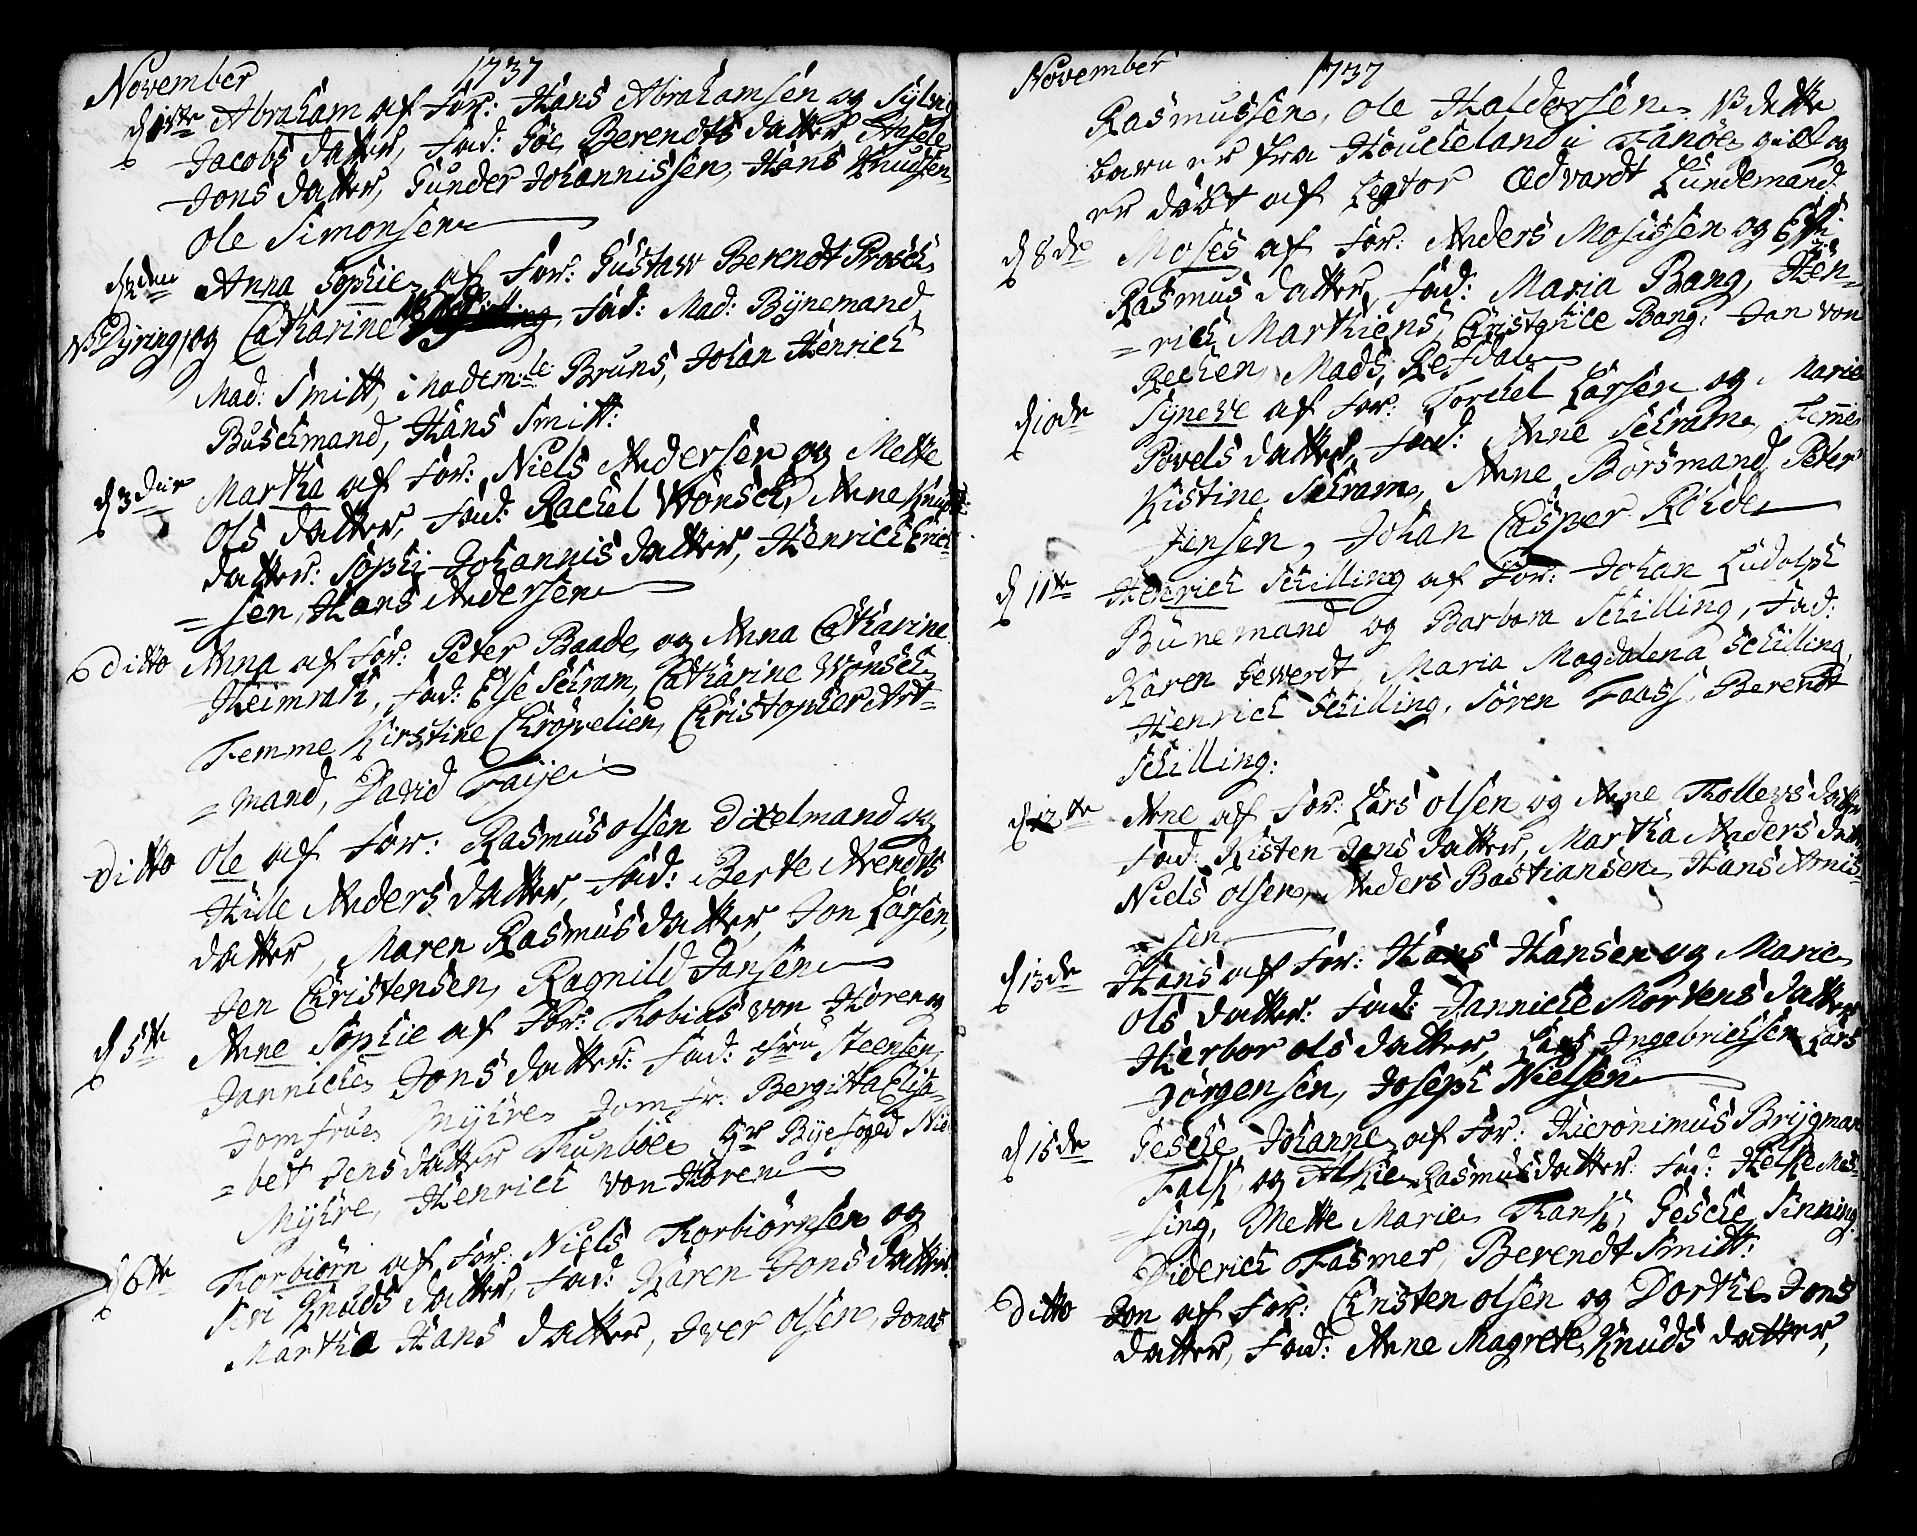 November 1737
d 1ste Abraham af For: Hans Abrahamsen og
Jacobs datter, Fad: Berendts datter
Jons datter, Gunder Johannissen, Hans Knudsen
Ole Simonsen
d 2den Anna Sophie af For: Gustaw Berendt Prosch
NB Dyring, og Catharine Fad: Mad: Bynemand
Mad: Smitt, Madem:le Bruns, Johan Henrich
Buschmand, Hans Smitt:
d 3die Martha af For: Niels Andersen og Mette
Ols datter, Fad: Rachel Wønsch, Anne
datter: Sophi Johannis datter, Henrich Erich
= sen, Hans Andersen
Ditto Anna af For: Peter Baade og Anna Catharine
Heimrath, Fad: Else Schram, Catharine Wønsch
Femme Kirstine Chrøpelien, Christopher Art=
= mand, David Faije
Ditto Ole af For: Rasmus olsen Dixelmand og
Hille Anders datter, Fad: Berte Arendts
datter, Maren Rasmus datter, Jon Larsen,
Jen Christensen, Ragnild Jansen
d 5te Anne Sophie af For: Tobias von Høren og
Janniche Jons datter: Fad: Fru Steensen,
Jomfrue Myhre Jomfr: Bergitta Elisa=
= bet Jens datter Tunboe Hr Byefoged Nie
Myhre, Henrich von Høren
d 6te Torbiørn af For: Niels Torbiørnsen og
Siri Knuds datter, Fad: Karen Jons datter
Martha Hans datter, Iver olsen, Jonas
November 1737
Rasmussen, Ole Haldorsen, NB dette
barn er fra Houcheland i Fanøe gield og
er døbt af Legtor Edvardt Lundemand
d 8de Moses af For: Anders Mosissen og
Rasmus datter, Fad: Maria Bang, Hen=
= rich Marthiens, Christence Bang, Jan von
Rechen Mads Refdal
d 10de Syneve af For: Torchel Larsen og Marie
Povels datter, Fad: Anne Schram, Femme
Kistine Schram, Anne Børsmand, Peter
Jensen, Johan Casper Rohde
d 11te Henrich Schilling af For: Johan Ludolph
Bünemand og Barbara Schilling, Fad:
Karen Gewerdt, Maria Magdalena Schilling,
Henrich Schilling, Søren Faass, Berendt
Schilling:
d 12te Anne af For: Lars olsen og Anne Tollevs datter
Fad: Kisten Jons datter, Martha Anders datter
Niels olsen, Anders Bastiansen, Hans Arnis=
= sen
d 13de Hans af For: Hans Hansen og Marie
Ols datter: Fad: Janniche Mortens datter
Herbor ols datter, Lars Ingebrichsen, Lars
Jørgensen, Joseph Nielsen
d 15de Gesche Johanne af For: Hieronimus Brijgman
Falsk, og Alhe Rasmus datter: Fad: Helche Mes=
= sing, Mette Marie Fansk, Gesche Sinning
Diderich Fasmer, Berendt Smitt:
Ditto Jon af For: Christen olsen og Dorthe Jons
datter, Fad: Anne Magrete Knuds datter,